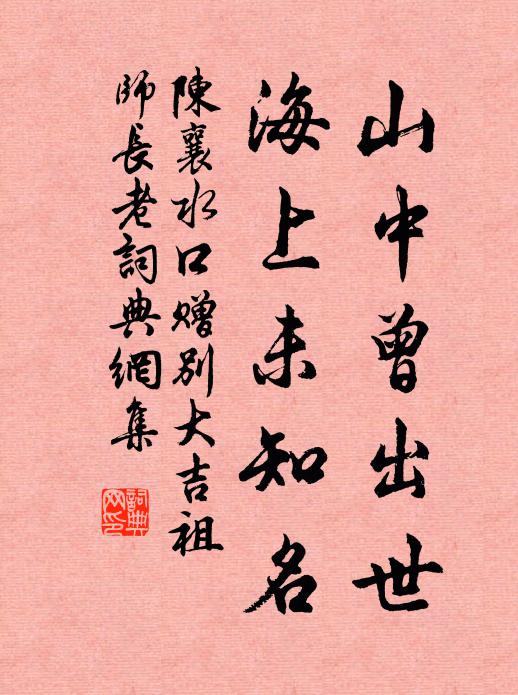 山中曾出世
海上未知名
陳襄水口贈別大吉祖
師長老詞典網集
詞典網印